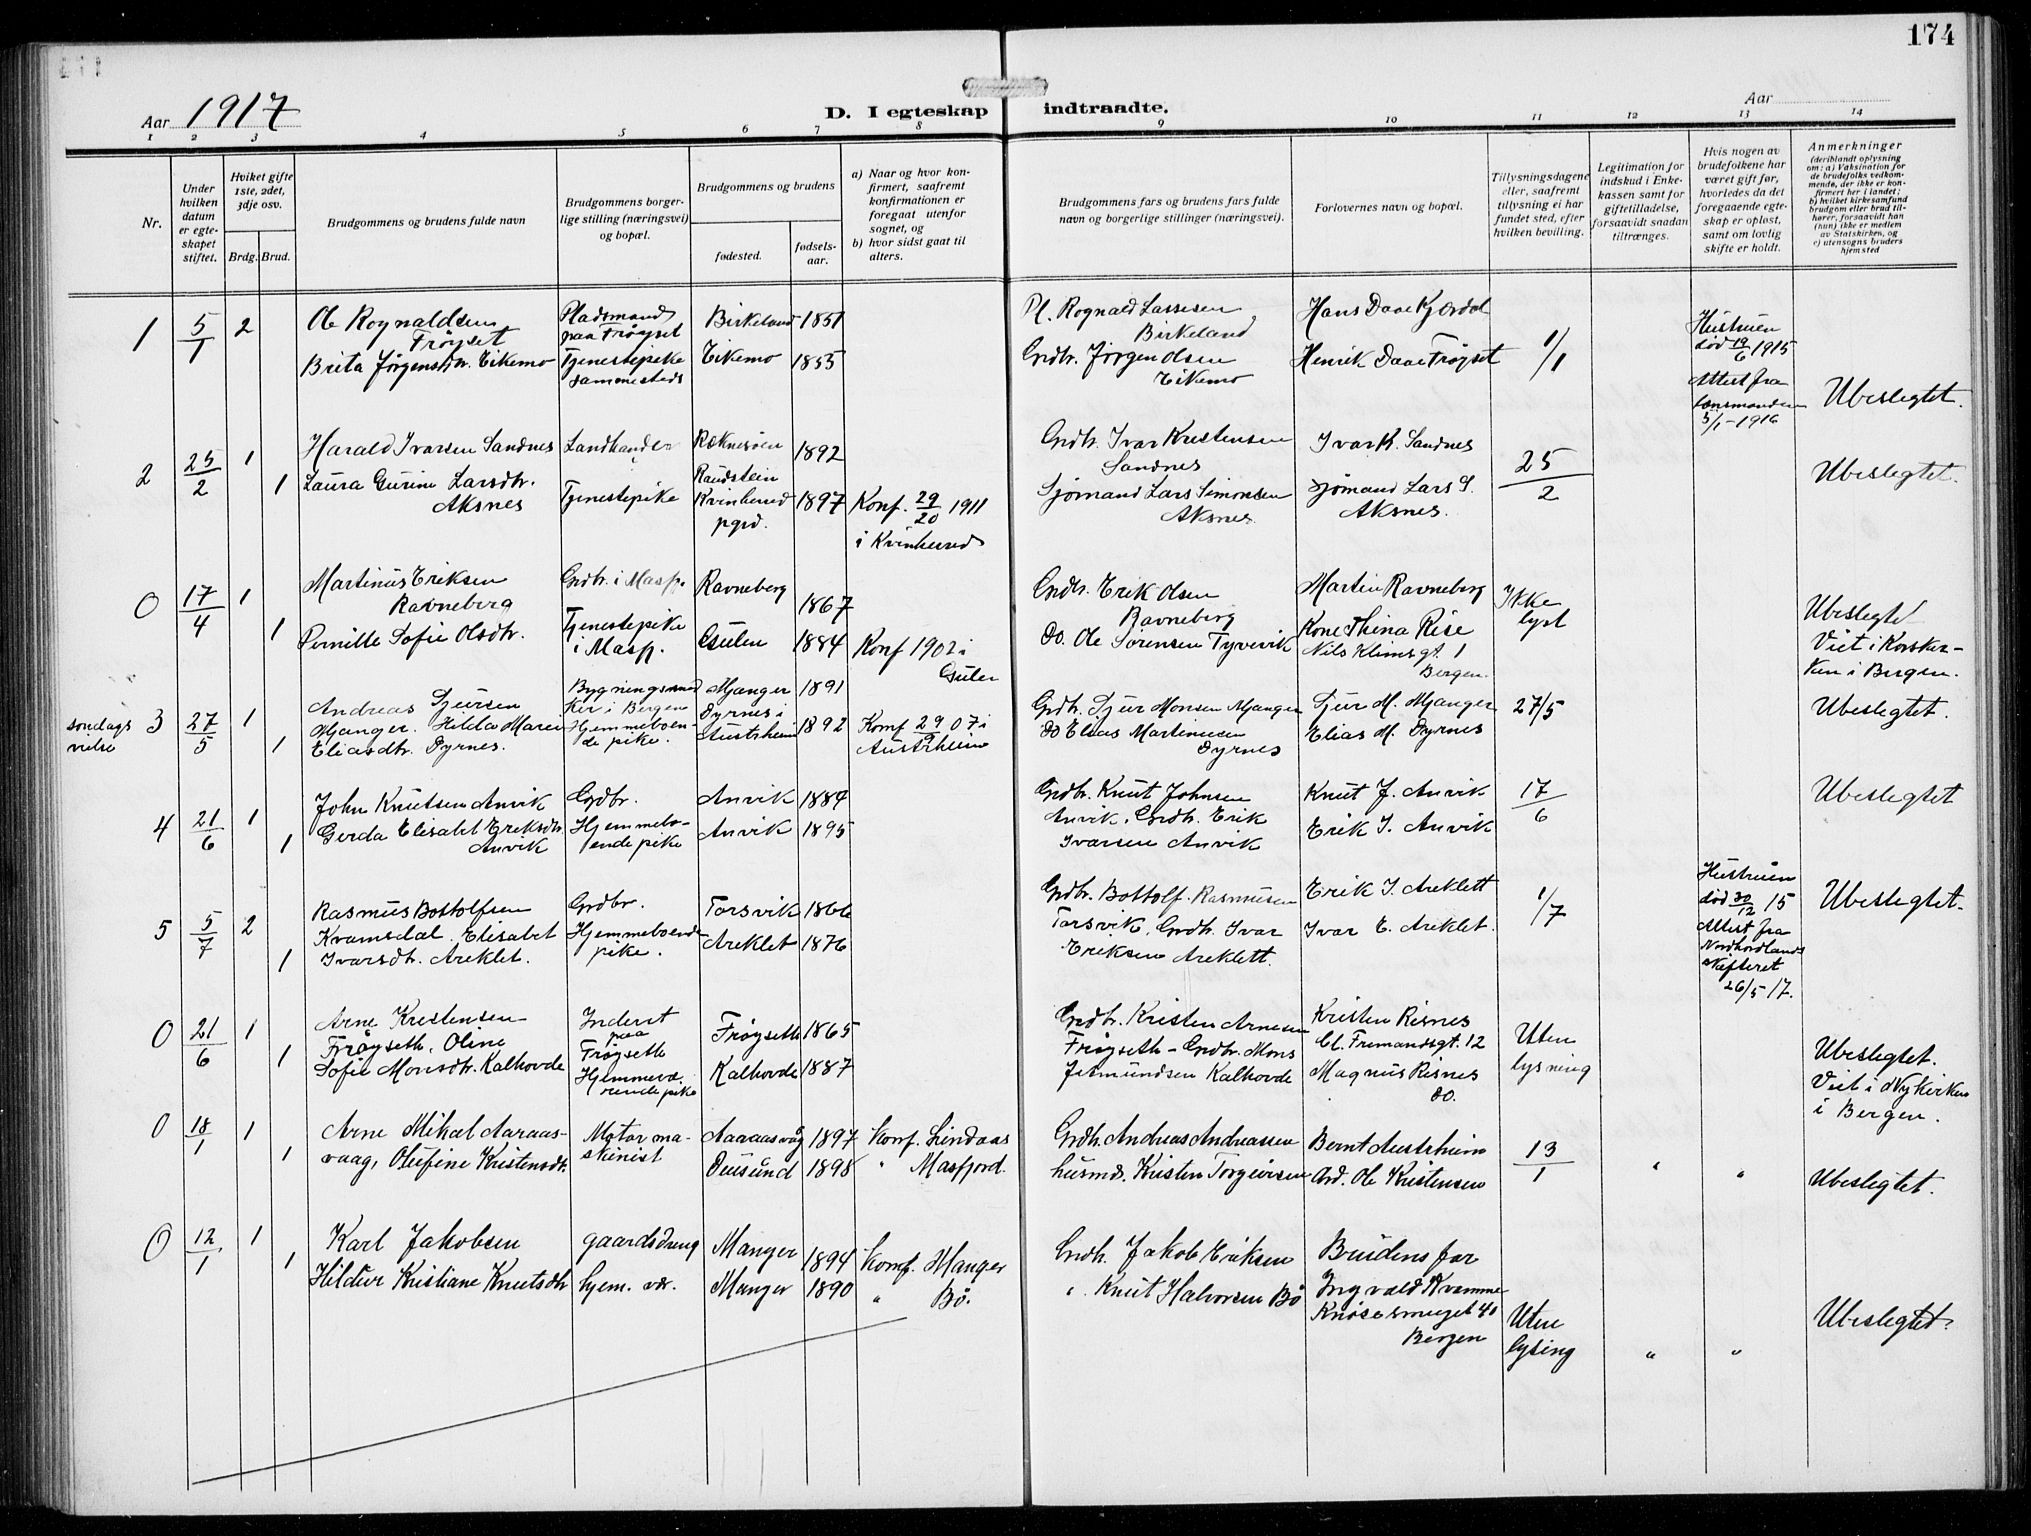 174
Aar 1917
D. I egteskap indtraadte.
Aar
1 2 3 4 5 6 7 8 9 10 11 12 13 14
Nr.
Under hvilken datum er egteskapet stiftet.
Hviket gifte 1ste, 2det, 3dje osv.
Brdg. Brud.
Brudgommens og brudens fulde navn
Brudgommens borgerlige stilling (næringsvei) og bopæl.
Brudgommens og brudens
fødested.
fødselsaar.
a) Naar og hvor konfirmert, saafremt konfirmationen er foregaat utenfor sognet, og
b) hvor sidst gaat til alters.
Brudgommens fars og brudens fars fulde navn og borgerlige stillinger (næringsvei).
Forlovernes navn og bopæl.
Tillysningsdagene eller, saafremt tillysning ei har fundet sted, efter hvilken bevilling.
Legitimation for indskud i Enkekassen samt for giftetilladelse, forsaavidt saadan tiltrænges.
Hvis nogen av brudefolkene har været gift før, hvorledes da det foregaaende egteskap er opløst, samt om lovlig skifte er holdt.
Anmerkninger
(deriblandt oplysning om: a) Vaksination for de brudefolks vedkommende, der ikke er konfirmert her i landet; b) hvilket kirkesamfund brudgom eller brud tilhører, forsaavidt han (hun) ikke er medlem av Statskirken, og c) utensogns bruders hjemsted
1 5/1 2 Ole Rognaldsen Frøyset Pladsmand paa Frøyset Birkeland 1851 Pl. Rognald Lassesen Birkeland Hans Daae Kjordal 1/1 Hustruen død 19/6 1915
Brita Jørgensdtr. Eikemo Tjenestepike sammesteds Eikemo 1855 Grdbr. Jørgen Olsen Eikemo Henrik Daae Frøyset Attest fra lensmanden 5/1-1916 Ubeslegtet.
2 25/2 1 Harald Ivarsen Sandnes Landhandler Ræknesøen 1892 Grdbr. Ivar Kristensen Sandnes Ivar K. Sandnes 25/2 Ubeslegtet.
1 Laura Gurine Larsdtr. Aksnes Tjenestepike Raudstein Kvinherred pgrd. 1897 Konf. 29/20 1911 i Kvinherred Sjømand Lars Simonsen Aksnes Sjømand Lars S. Aksnes.
0 17/4 1 Martinus Eriksen Ravneberg Grdbr. i Masf. Ravneberg 1867 Grdbr. Erik Olsen Ravneberg Martin Ravneberg Ikke lyst Ubeslegtet
1 Pernille Sofie Olsdtr. Tjenestepike i Masf. Gulen 1884 Konf 1902 i Gulen Do. Ole Sørensen Tyvevik Kone Thina Rise Nils Klimsgt. 1 Bergen. Viet i Korskirken i Bergen.
søndags vilse 3 27/5 1 Andreas Sjursen Mjanger. Hilda Marie Bygningssnedker i Bergen Mjanger 1891 Grdbr. Sjur Monsen Mjanger Sjur M. Mjanger 27/5 Ubeslegtet.
1 Eliasdtr. Dyrnes. Hjemmeboende pike. Dyrnes i Austrheim 1892 Konf 29/9 07 i Austrheim do Elias Martinusen Dyrnes Elias M. Dyrnes
4 21/6 1 John Knutsen Anvik Grdbr. Anvik 1884 Grdbr. Knut Johnsen Anvik. Knut J. Anvik 17/6 Ubeslegtet
1 Gerda Elisabet Eriksdtr. Anvik Hjemmeboende pike Anvik 1895 Grdbr. Erik Ivarsen Anvik Erik I. Anvik
5 5/7 2 Rasmus Bottolfsen Kvamsdal. Grdbr. Torsvik 1866 Grdbr. Bottolf Rasmusen Torsvik. Erik I. Areklett 1/7 Hustruen død 30/12 15 Ubeslegtet.
1 Elisabet Ivarsdtr. Areklet. Hjemmeboende pike. Areklet 1876 Grdbr. Ivar Eriksen Areklett. Ivar E. Areklet. Attest fra Nordhordlands skifteret 26/5 17.
0 21/6 1 Arne Kristensen Frøyseth. Inderst paa Frøyseth Frøyseth 1865 Grdbr. Kristen Arnesen Frøyseth - Kristen Risnes Cl. Frimandsgt. 12 Uten lysning Ubeslegtet.
1 Oline Sofie Monsdtr. Kalhovde Hjemmeværende pike Kalhovde 1887 Grdbr. Mons Jetmundsen Kalhovde Magnus Risnes do. Viet i Nykirken i Bergen.
0 18/1 1 Arne Mikal Aaraasvaag, Motormaskinist Aaraasvåg 1897 Konf. Lindaas Grdbr. Andreas Andreassen Bernt Austrheim 13/1 " " Ubeslegtet.
1 Olufine Kristensdtr. Duesund 1898 " Masfjord. husmd. Kristen Torgeirsen Ard. Ole Kristensen
0 12/1 1 Karl Jakobsen gaardsdreng Manger 1894 Konf. Manger Grdbr. Jakob Eriksen Brudens far Uten lysing " " Ubeslegtet.
1 Hildur Kristiane Knutsdtr hjem. vær. Manger 1890 " Bö. " Knut Halvorsen Bö Ingvald Kvamme Knøsesmuget 40 Bergen